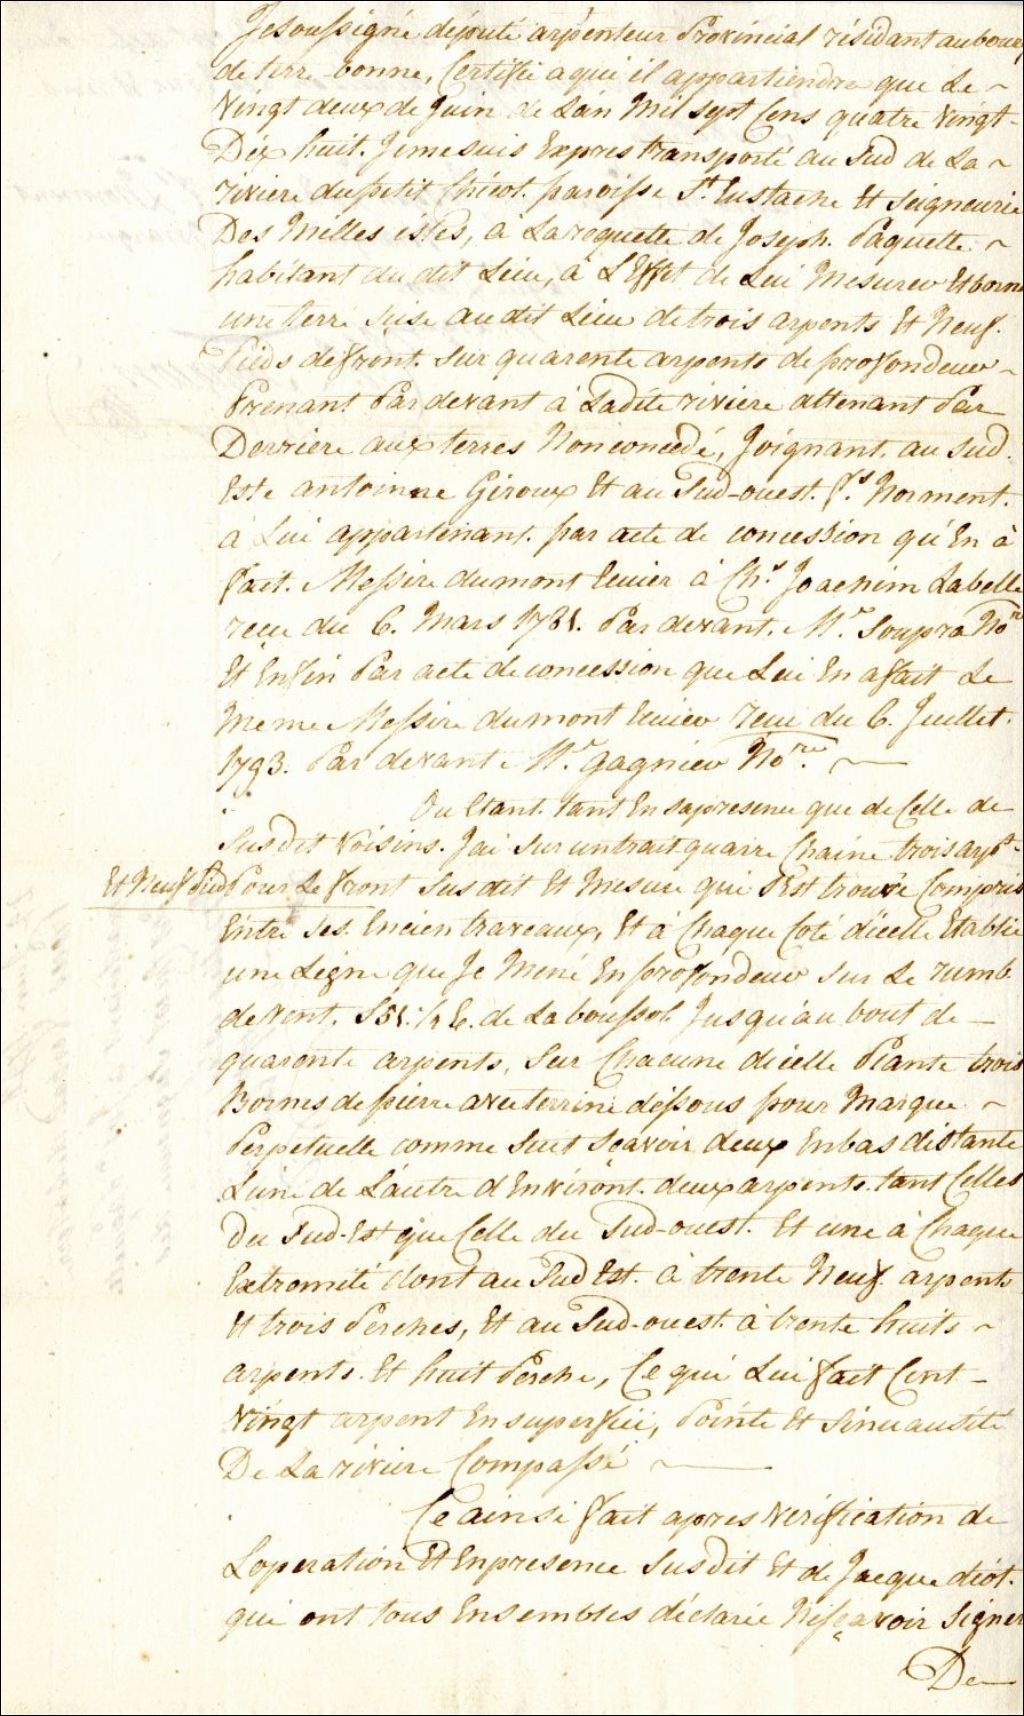 Je soussigné député arpenteur Provincial résidant au bourg
de terre bonne, Certifie a qui il appartiendra que Le ~
Vingt deux de Juin de Lan Mil sept Cens quatre Vingt-
Dix huit. Je me suis Expres transporté au Sud de La ~
riviere du petit Chicot. paroisse St. Eustache Et Seigneurie
Des Milles isles, à La requette de Joseph. Paquette. ~
habitant du dit Lieu, à L'Effet de Lui Mesurer Et borne
une terre sise au dit Lieu de trois arpents Et Neuf.
Pieds de front. Sur quarente arpents de profondeur ~
Prenant Par devant à Ladite riviere attenant Par
Derriere aux terres Non concedé, Joignant. au Sud.
Este antoinne Giroux Et au Sud-ouest. frs. Norment.
à Lui appartenant. par acte de concession qu'En à
fait. Messire dumont Ecuier à Chs. Joachim Labelle
recu du 6. Mars 1781. Par devant. Mr. Soupra Nore
Et Enfin Par acte de concession que Lui En a fait Le
Meme Messire dumont Ecuier recu du 6. Juillet.
1793. Par devant Mr. Gagnier Nore. ~
Ou Etant. tant En sa presence que de Celle de
Susdit Voisins. Jai Sur un trait quarré Chainé trois arpts.
Et Neuf Pied Pour Le front Sus dit Et Mesure qui S'Est trouvée Compris
Entre Ses Encien travaeaux, Et à Chaque Coté d'icelle Etablie
une Ligne que Je Mené En profondeur Sur Le rumb
de Vent. S 51. 1/2 E. de La boussol. Jusqu'au bout de —
quarente arpents, Sur Chacune dicelle Planté trois
Bornes de pierre avec terrine dessous pour Marque ~
Perpetuelle comme Suit Sçavoir deux En bas distante
Lune de Lautre d'Environt. deux arpents. tant Celles
Du Sud-Est que Celle du Sud-ouest. Et une à Chaque
Extremité dont au Sud Est. à trente Neuf. arpents
Et trois Perches, Et au Sud-ouest à trente huits ~
arpents. Et huit Perche, Ce qui Lui fait Cent —
Vingt arpent En superficie, Pointe Et Sinuausité
De La riviere Compassé ~
Ce ainsi fait apres Verification de
Loperation Et En presence Susdit Et de Jacque
qui ont tous Ensembles déclarée Ne sçavoir Signer
De